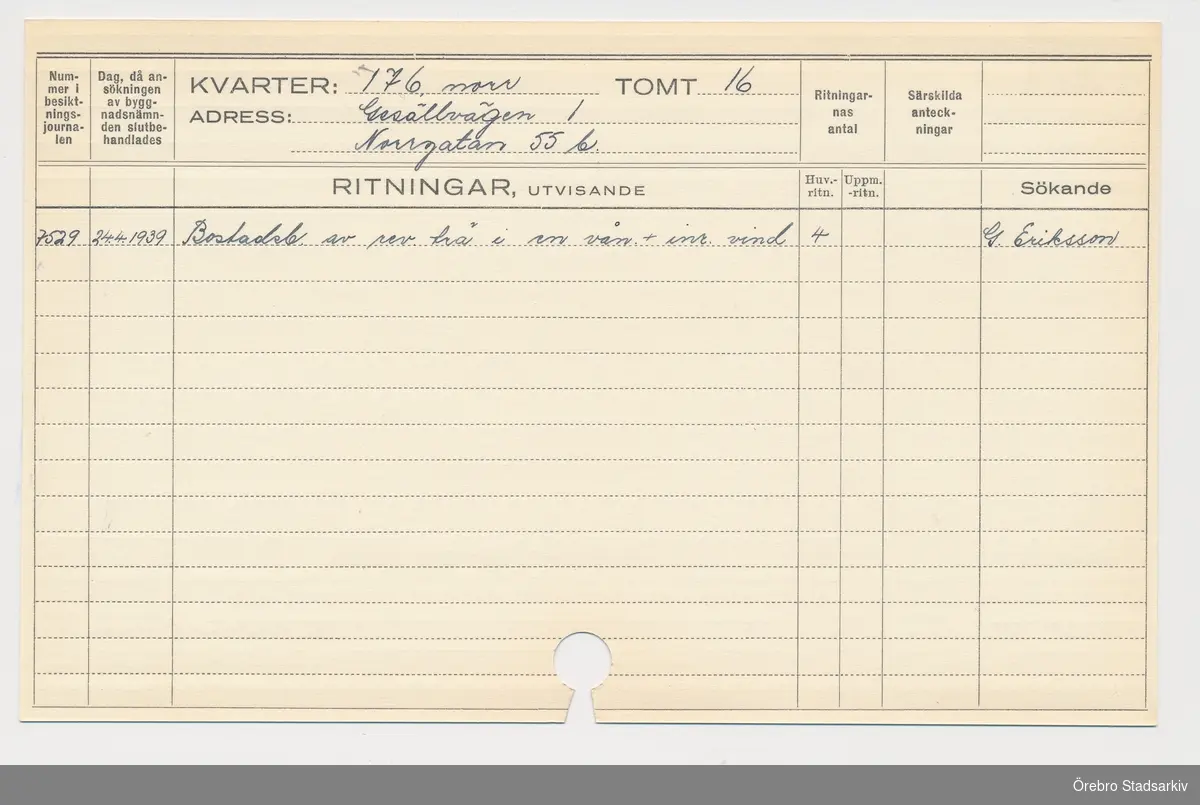 Num-
mer i
besikt-
nings-
journa-
len
Dag, då an-
sökningen
av bygg-
nadsnämn-
den slutbe-
handlades
KVARTER: 176, norr TOMT 16
ADRESS: Gesällvägen 1
Norrgatan 55 b.
Ritningar-
nas
antal
Särskilda
anteck-
ningar
RITNINGAR, UTVISANDE
Huv.-
ritn.
Uppm.
-ritn.
Sökande
7529 24.4.1939 Bostadsb. av rev. trä i en vån. + inr. vind 4 G. Eriksson
Örebro Stadsarkiv